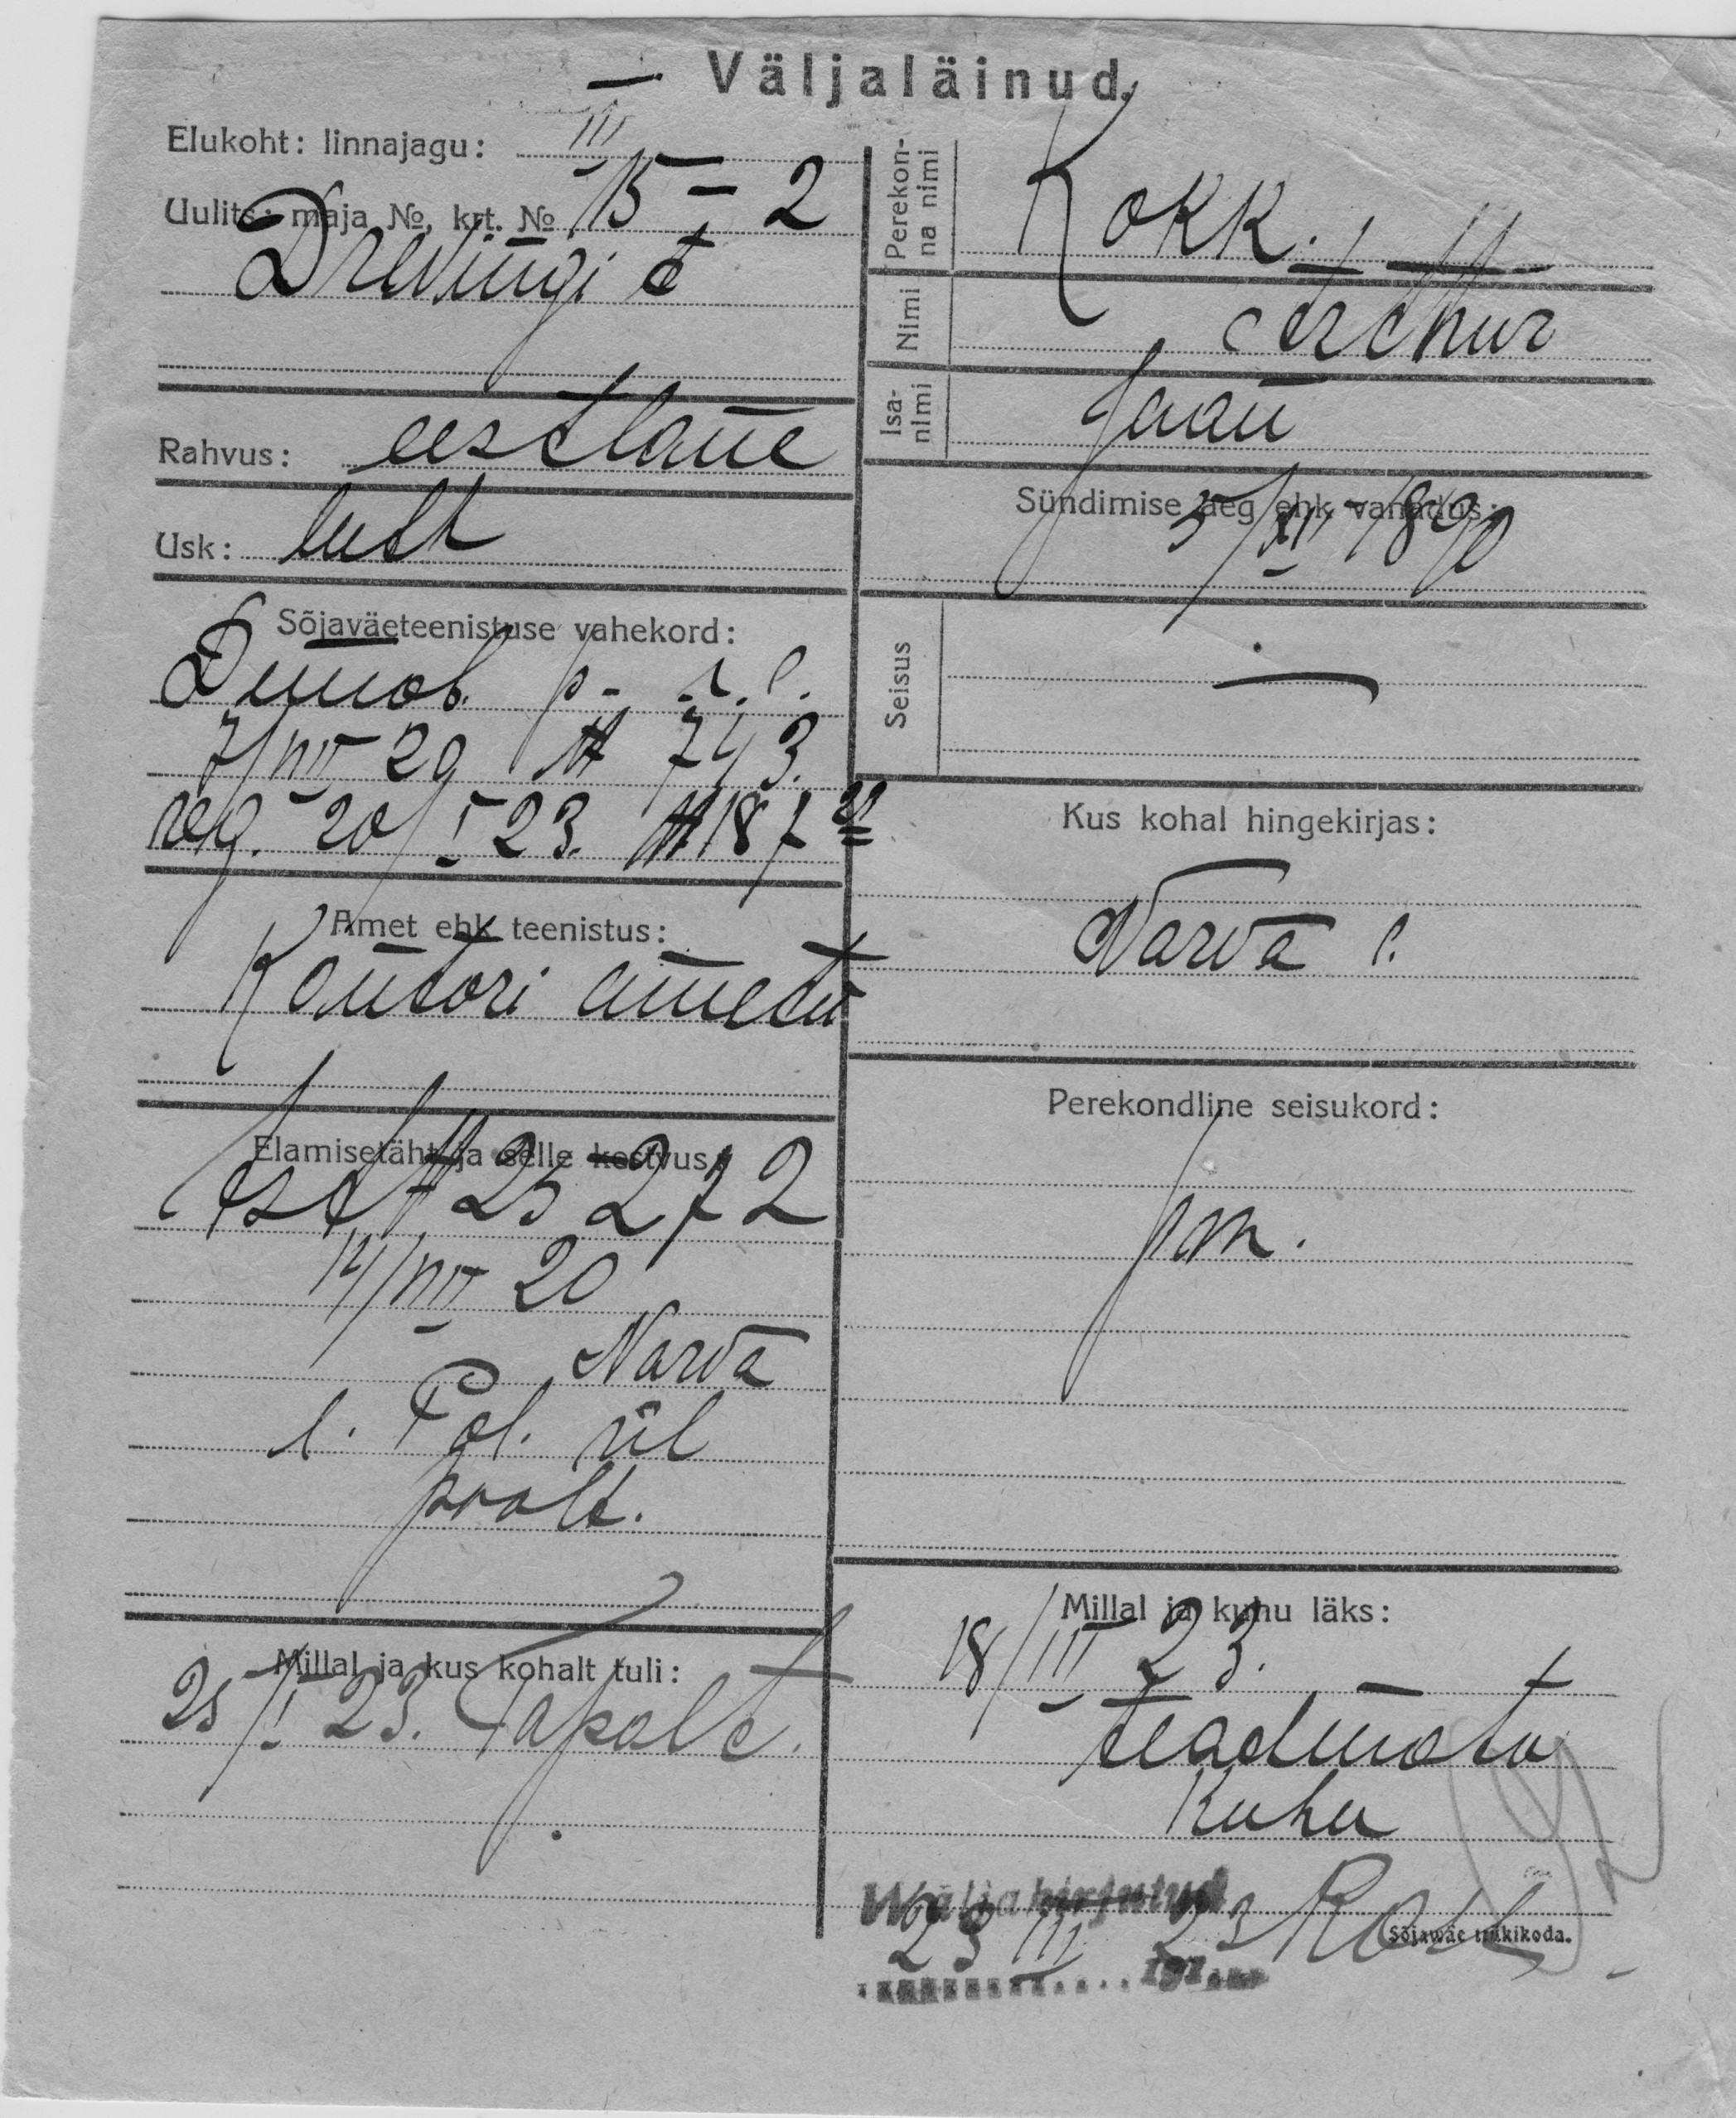 Väljaläinud.
Elukoht: linnajagu: III
Uulits: maja №, krt. № 15 – 2
Drevingi t
Rahvus: eestlane
Usk: luth
Sõjaväeteenistuse vahekord:
Demob.
reg. 20/I 23. № 187
Amet ehk teenistus:
Kontori ametn
Elamisetäht ja selle kestvus:
№ 25272
Narva
l. Pol. ül
poolt.
Millal ja kus kohalt tuli:
25/I 23. Tapalt.
Perekonna nimi
Kokk.
Nimi
Arthur
Isanimi
Jaan
Sündimise aeg ehk vanadus:
5/XII 1890
Seisus
—
Kus kohal hingekirjas:
Narva l.
Perekondline seisukord:
Millal ja kuhu läks:
18/III 23.
teadmata
kuhu
Wäljakirjutud
23 III 23
191
Sõjawäe trükikoda.